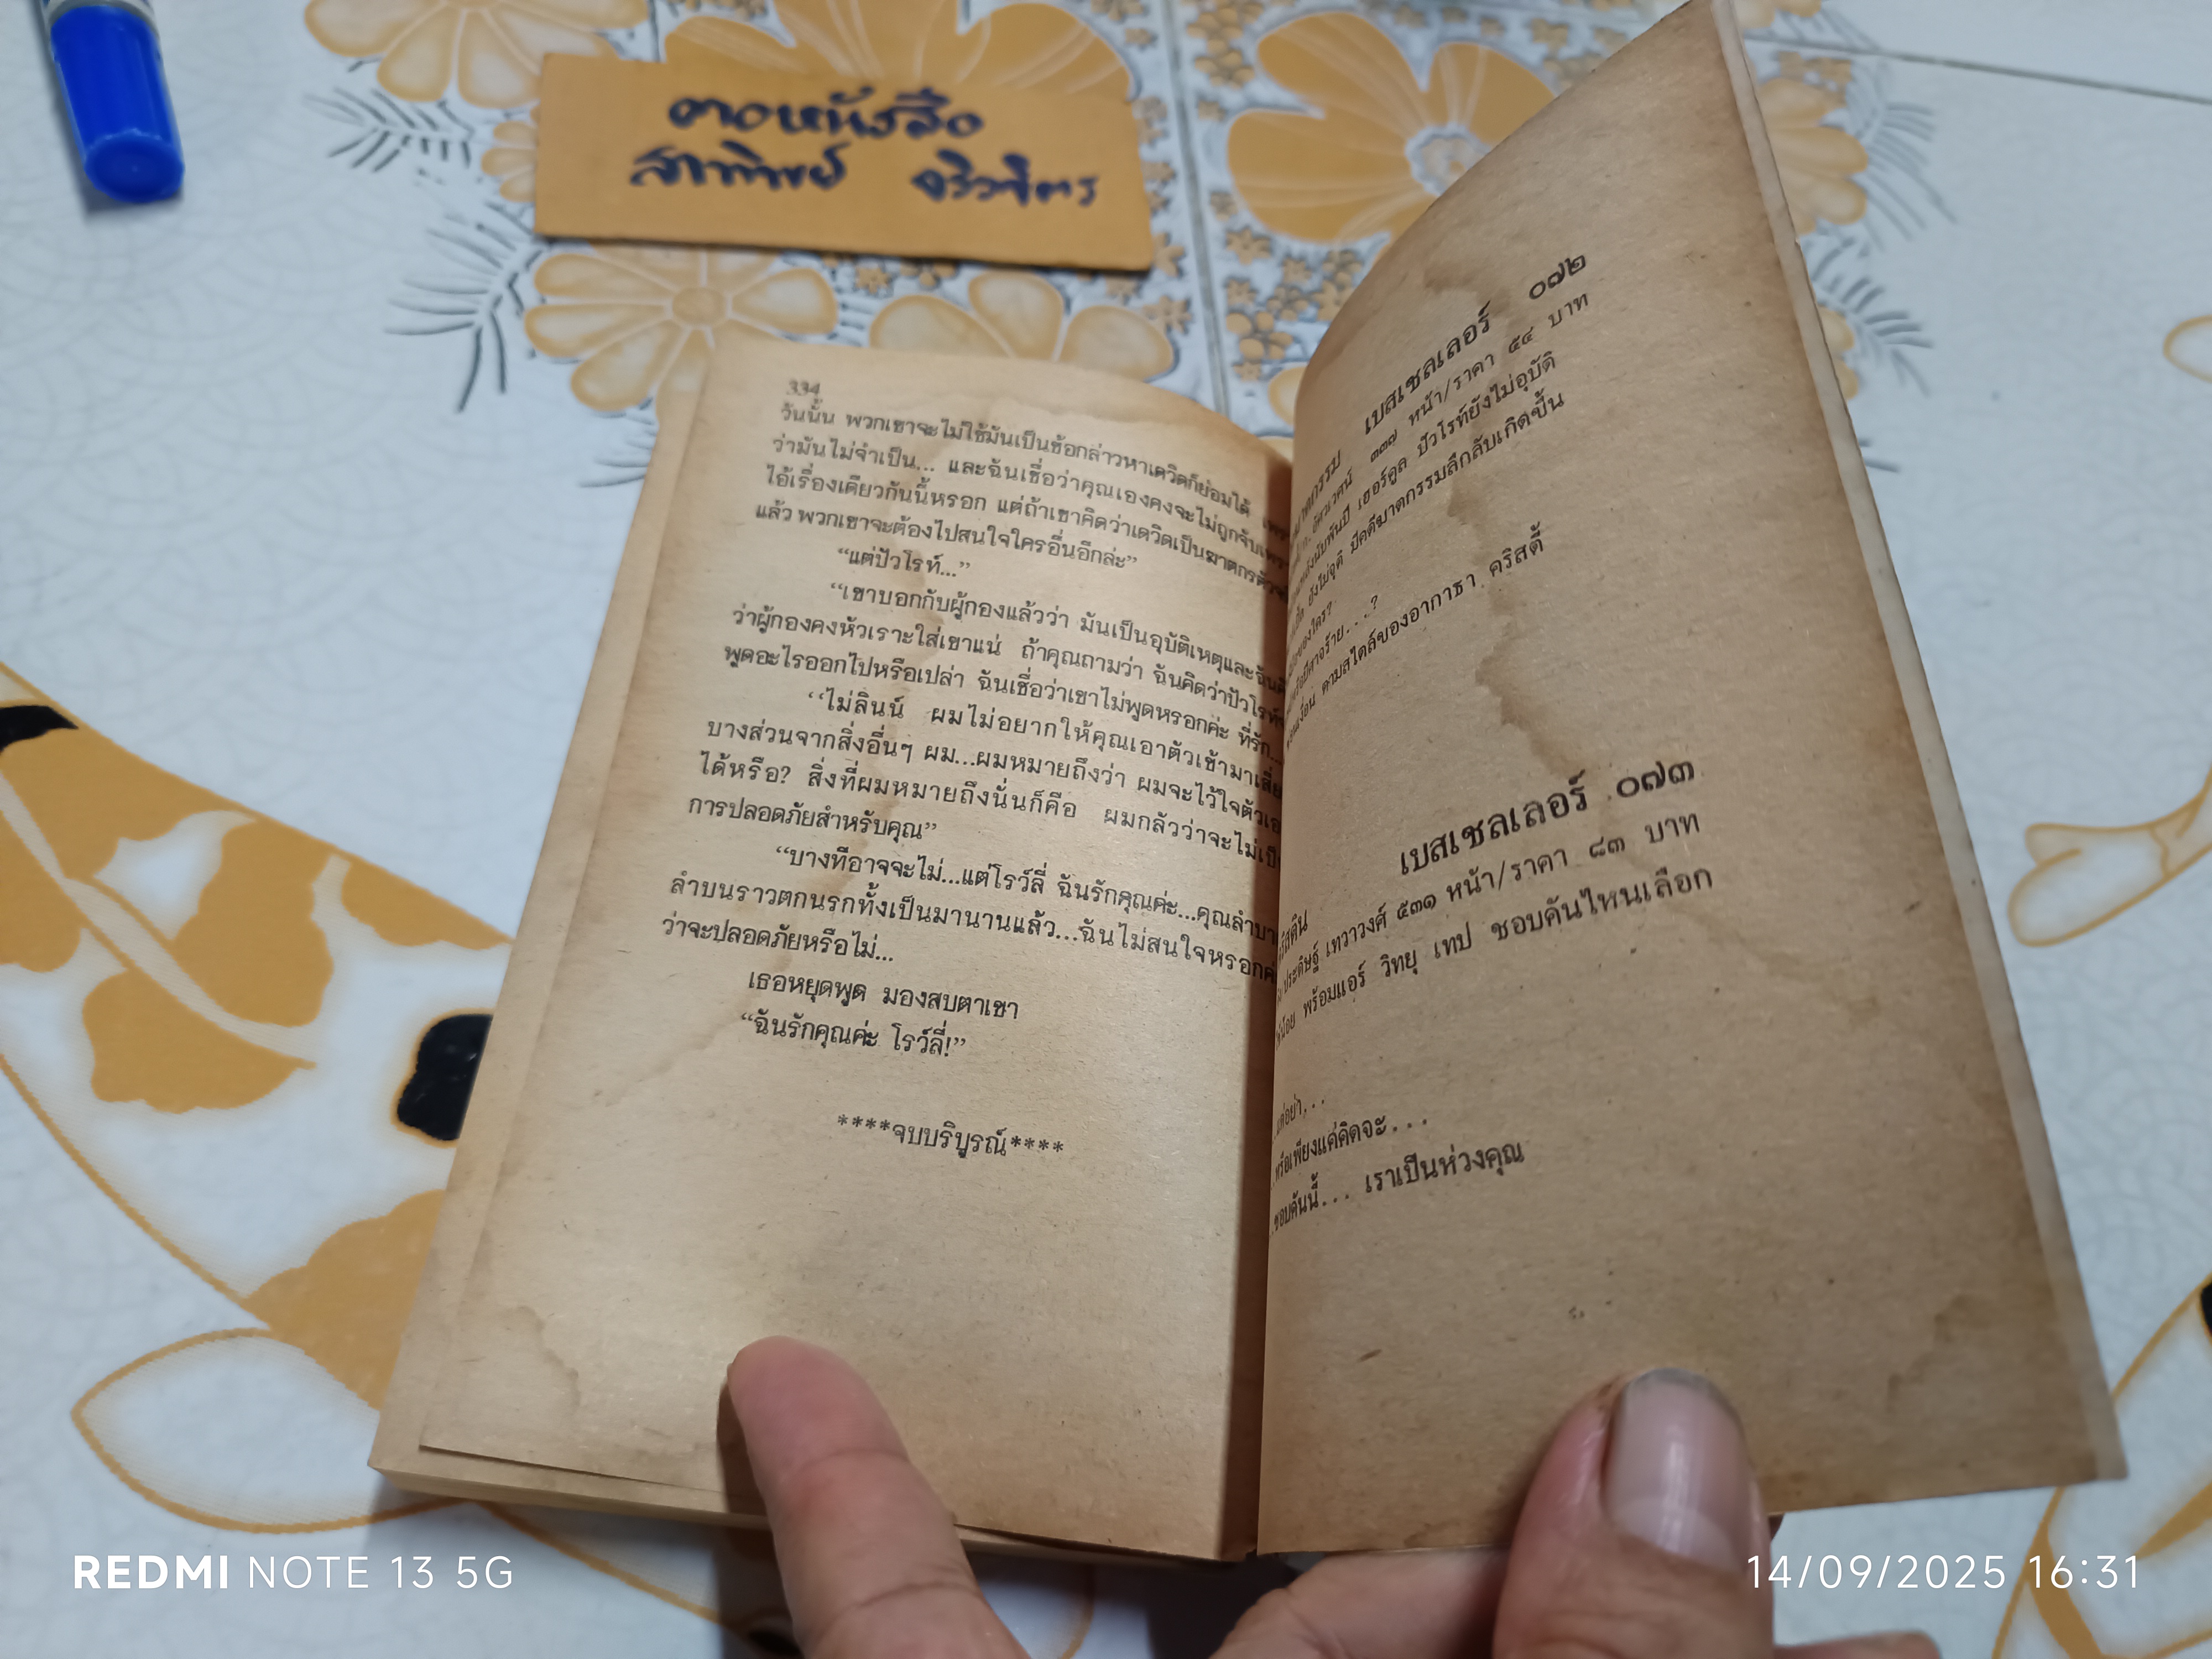 ตาอหนังสือ
สาทิพย์ จริวจิตร
334
วันนั้น พวกเขาจะไม่ใช้มันเป็นข้อกล่าวหาเดวิดก็ย่อมได้
ว่ามันไม่จำเป็น... และฉันเชื่อว่าคุณเองคงจะไม่ถูกจับ
ไอ้เรื่องเดียวกันนี้หรอก แต่ถ้าเขาคิดว่าเดวิดเป็นฆาตกร
แล้ว พวกเขาจะต้องไปสนใจใครอื่นอีกล่ะ”
“แต่ปัวโรท์...”
“เขาบอกกับผู้กองแล้วว่า มันเป็นอุบัติเหตุและฉัน
ว่าผู้กองคงหัวเราะใส่เขาแน่ ถ้าคุณถามว่า ฉันคิดว่าปัวโรท์
พูดอะไรออกไปหรือเปล่า ฉันเชื่อว่าเขาไม่พูดหรอกค่ะ ที่รัก...
“ไม่ลินน์ ผมไม่อยากให้คุณเอาตัวเข้ามาเสี่ย
บางส่วนจากสิ่งอื่นๆ ผม...ผมหมายถึงว่า ผมจะไว้ใจตัวเอ
ได้หรือ? สิ่งที่ผมหมายถึงนั่นก็คือ ผมกลัวว่าจะไม่เป็
การปลอดภัยสำหรับคุณ”
“บางทีอาจจะไม่...แต่โรว์ลี่ ฉันรักคุณค่ะ...คุณลำบา
ลำบนราวตกนรกทั้งเป็นมานานแล้ว...ฉันไม่สนใจหรอกค่
ว่าจะปลอดภัยหรือไม่...
เธอหยุดพูด มองสบตาเขา
“ฉันรักคุณค่ะ โรว์ลี่!”
****จบบริบูรณ์****
เบสเซลเลอร์ ๐๗๒
๓๓๗ หน้า/ราคา ๕๔ บาท
เฮอร์คูล ปัวโรท์ยังไม่อุบัติ
ยังไม่จุติ มีคดีฆาตกรรมลึกลับเกิดขึ้น
ของใคร?
ตามสไตล์ของอากาธา คริสตี้
เบสเซลเลอร์ ๐๗๓
ประดิษฐ์ เทวาวงศ์ ๕๓๑ หน้า/ราคา ๘๓ บาท
พร้อมแอร์ วิทยุ เทป ชอบคันไหนเลือก
แต่อย่า...
หรือเพียงแค่คิดจะ...
ชอบคันนี้... เราเป็นห่วงคุณ
REDMI NOTE 13 5G
14/09/2025 16:31